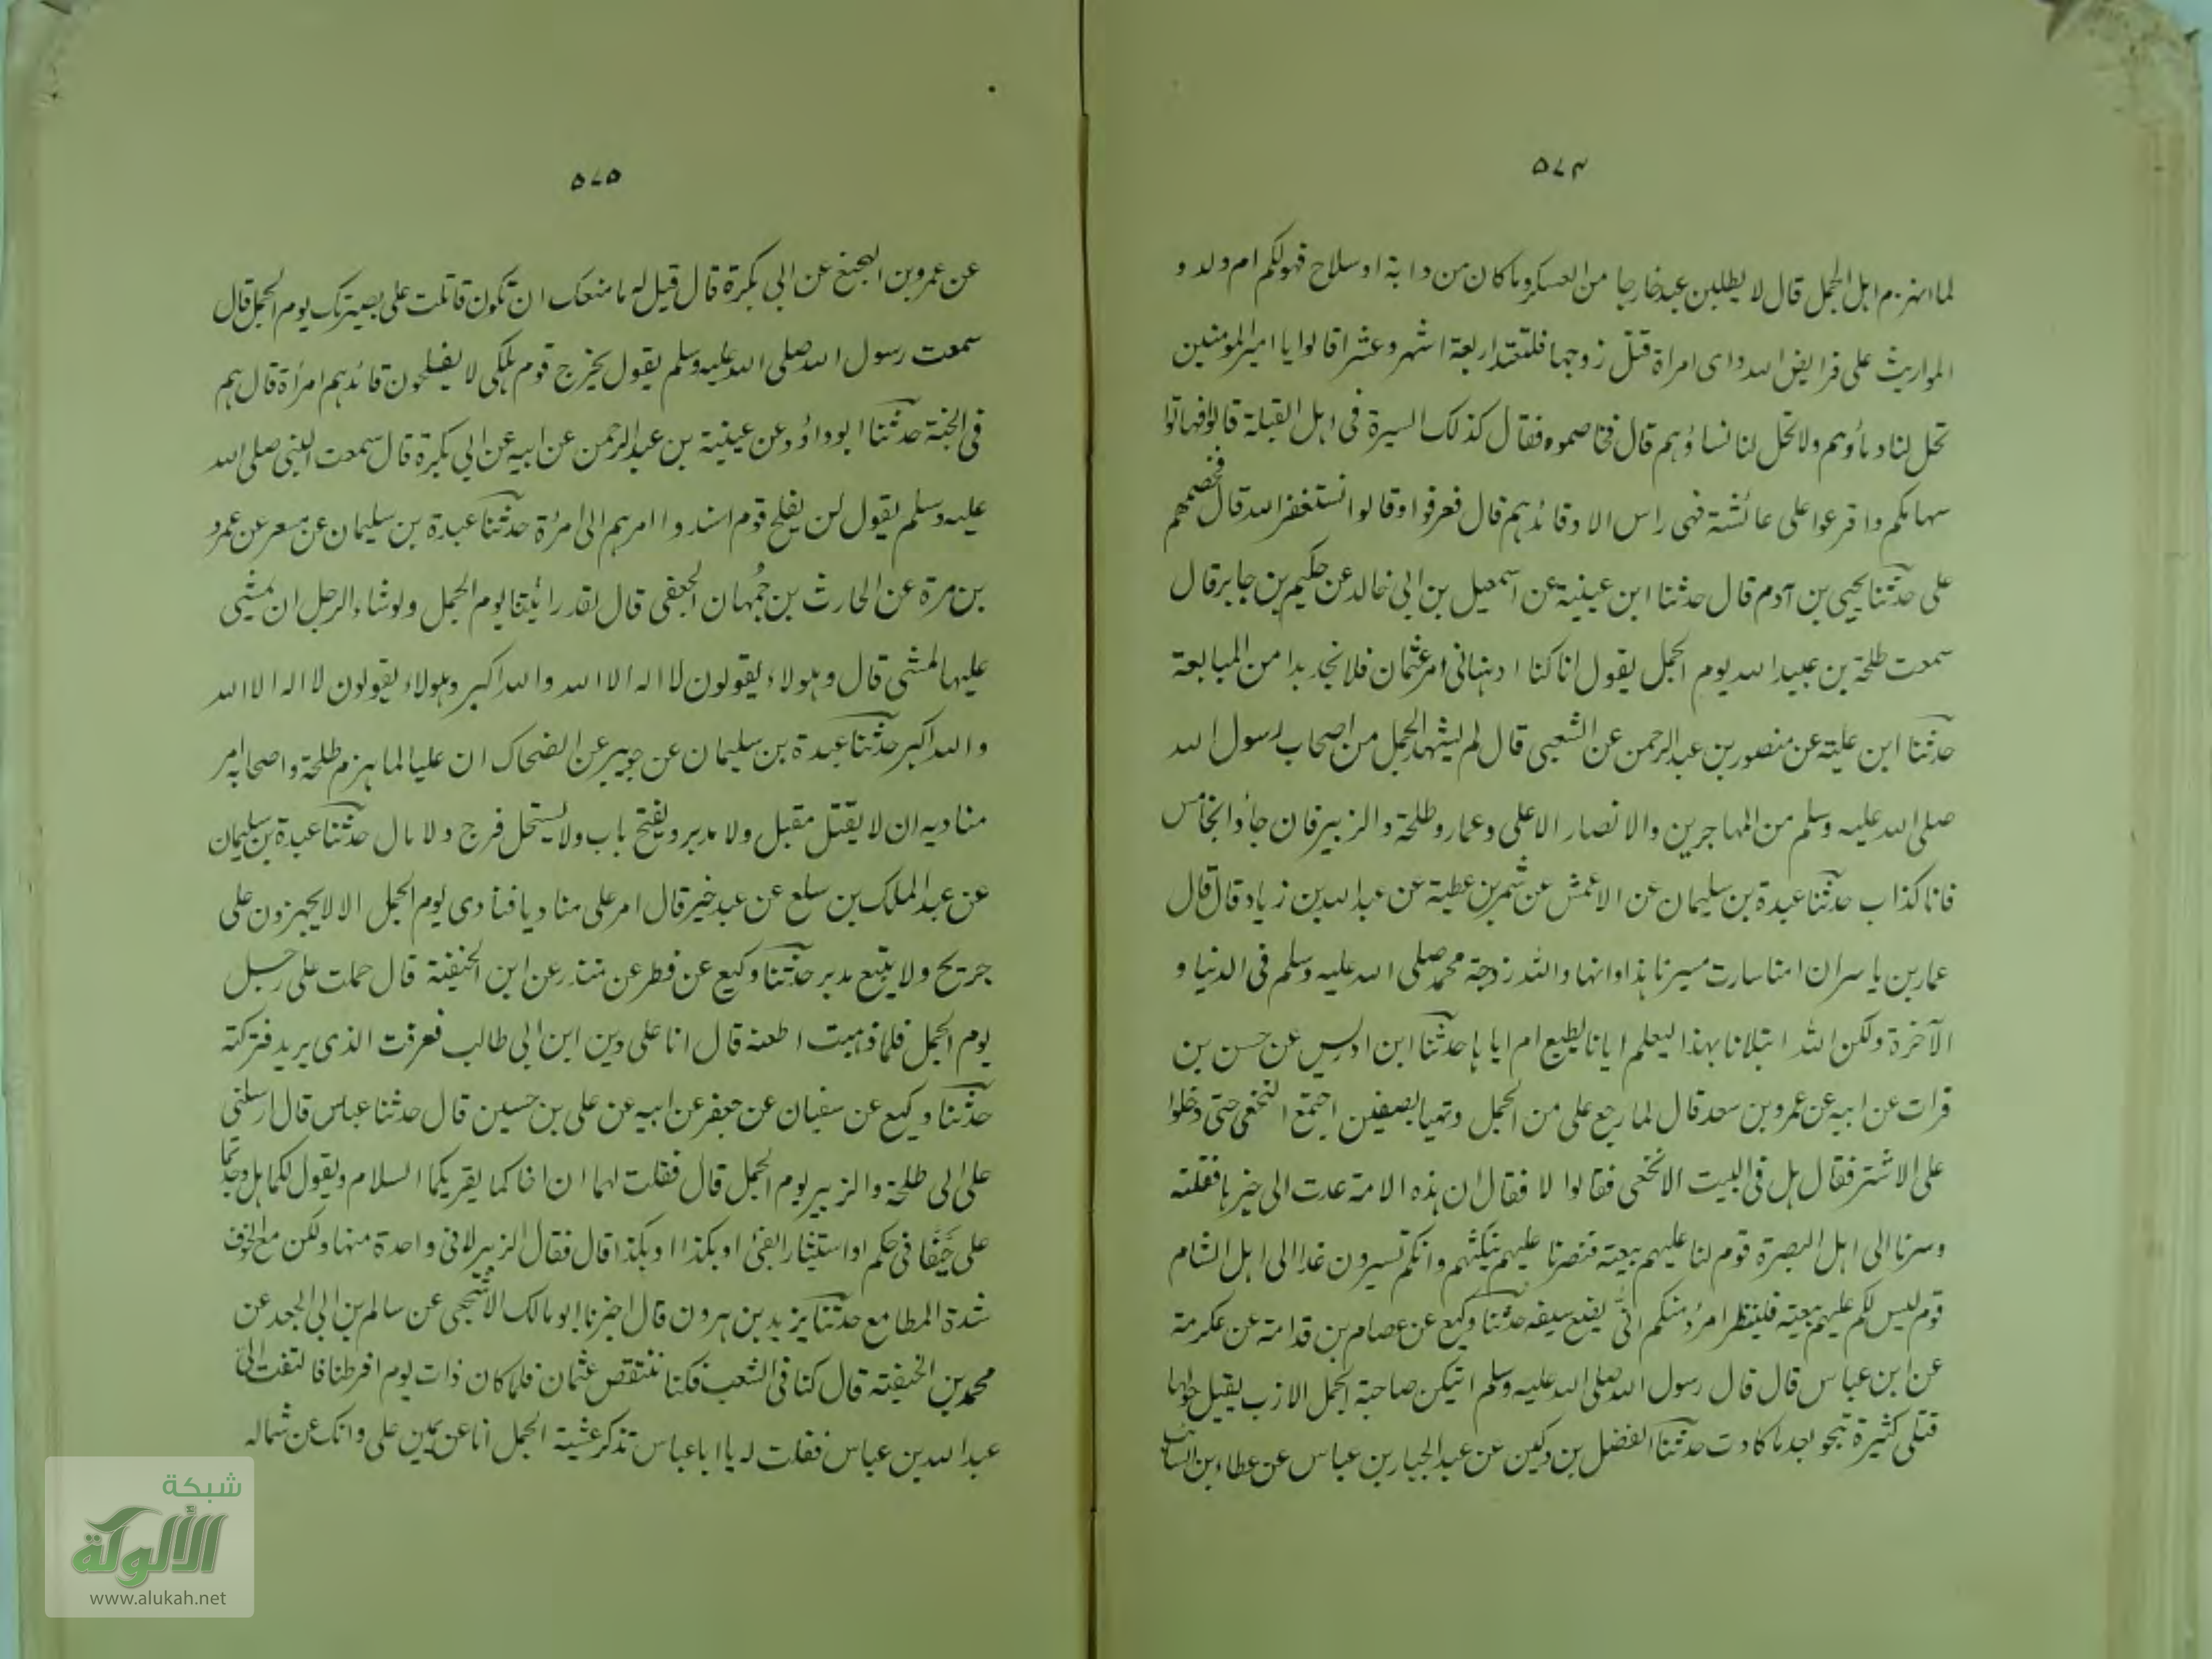 ٥٧٤
لما انهزم اهل الجمل قال لا يطلبن عبد خارجا من العسكر وما كان من دابة او سلاح فهو لكم ام ولد و
المواريث على فرايض الله واى امراة قتل زوجها فلتعتد اربعة اشهر وعشرا قالوا يا امير المومنين
تحل لنا دماؤهم ولا تحل لنا نساؤهم قال فخاصموه فقال كذلك السيرة فى اهل القبلة قالوا فهاتوا
سهامكم واقرعوا على عائشة فهى راس الامر وقائدهم قال فعرفوا وقالوا نستغفر الله قال فخصمهم
على حدثنا يحيى بن آدم قال حدثنا ابن عيينة عن اسمعيل بن ابى خالد عن حكيم بن جابر قال
سمعت طلحة بن عبيد الله يوم الجمل يقول انا كنا ادهنا فى امر عثمان فلا نجد بدا من المبايعة
حدثنا ابن علية عن منصور بن عبد الرحمن عن الشعبى قال لم يشهد الجمل من اصحاب رسول الله
صلى الله عليه وسلم من المهاجرين والانصار الا على وعمار وطلحة والزبير فان جاؤا بخامس
فانا كذاب حدثنا عبدة بن سليمان عن الاعمش عن شمر بن عطية عن عبد الله بن زياد قال قال
عمار بن ياسر ان امنا سارت مسيرنا هذا وانها والله زوجة محمد صلى الله عليه وسلم فى الدنيا و
الآخرة ولكن الله ابتلانا بهذا ليعلم ايانا نطيع ام اياها حدثنا ابن ادريس عن حسن بن
فرات عن ابيه عن عمرو بن سعد قال لما رجع على من الجمل وتهيا بصفين اجتمع النخعى حتى دخلوا
على الاشتر فقال هل فى البيت الا نخعى فقالوا لا فقال ان هذه الامة عدت الى خيرها فقتلته
وسرنا الى اهل البصرة قوم لنا عليهم بيعة فنصرنا عليهم بنكثهم وانكم تسيرون غدا الى اهل الشام
قوم ليس لكم عليهم بيعة فلينظر امرؤ منكم انى يضع سيفه حدثنا وكيع عن عصام بن قدامة عن عكرمة
عن ابن عباس قال قال رسول الله صلى الله عليه وسلم ايتكن صاحبة الجمل الازب يقتل حولها
قتلى كثيرة تنجو بعد ما كادت حدثنا الفضل بن دكين عن عبد الجبار بن عباس عن عطاء بن السائب
٥٧٥
عن عمرو بن الهجنع عن ابى بكرة قال قيل له ما منعك ان تكون قاتلت على بصيرتك يوم الجمل قال
سمعت رسول الله صلى الله عليه وسلم يقول يخرج قوم هلكى لا يفلحون قائدهم امرأة قال هم
فى الجنة حدثنا ابو داؤد عن عيينة بن عبد الرحمن عن ابيه عن ابى بكرة قال سمعت النبى صلى الله
عليه وسلم يقول لن يفلح قوم اسندوا امرهم الى امرأة حدثنا عبدة بن سليمان عن مسعر عن عمرو
بن مرة عن الحارث بن جُمْهان الجعفى قال لقد رائيتنا يوم الجمل ولو شاء الرجل ان يمشى
عليها لمشى قال وهولاء يقولون لا اله الا الله والله اكبر وهولاء يقولون لا اله الا الله
والله اكبر حدثنا عبدة بن سليمان عن جويبر عن الضحاك ان عليا لما هزم طلحة واصحابه امر
مناديه ان لا يقتل مقبل ولا مدبر ويفتح باب ولا يستحل فرج ولا مال حدثنا عبدة بن سليمان
عن عبد الملك بن سلع عن عبد خير قال امر على مناديا فنادى يوم الجمل الا لا يجهزون على
جريح ولا يتبع مدبر حدثنا وكيع عن فطر عن منذر عن ابن الحنفية قال حملت على رجل
يوم الجمل فلما ذهبت اطعنه قال انا على دين ابن ابى طالب فعرفت الذى يريد فتركته
حدثنا وكيع عن سفيان عن جعفر عن ابيه عن على بن حسين قال حدثنا عباس قال ارسلنى
على الى طلحة والزبير يوم الجمل قال فقلت لهما ان اخاكما يقريكما السلام ويقول لكما هل وجدتما
على حَيْفًا فى حكم او استيثار الفئ او بكذا او بكذا قال فقال الزبير لا فى واحدة منها ولكن مع الخوف
شدة المطامع حدثنا يزيد بن هرون قال اخبرنا ابو مالك الاشجعى عن سالم بن ابى الجعد عن
محمد بن الحنفية قال كنا فى الشعب فكنا ننتقص عثمان فلما كان ذات يوم افرطنا فالتفت الىّ
عبد الله بن عباس فقلت له يا ابا عباس تذكر عشية الجمل انا عن يمين على وانك عن شماله
شبكة
الألوكة
www.alukah.net